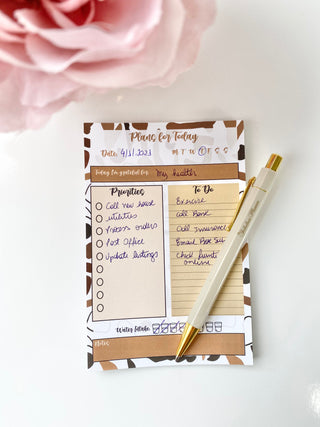 Plans for Today
Date: 4/6/2023 M T W T F S S
Today I'm grateful for: My health
Priorities
Call new house
utilities
Process orders
Post Office
Update listings
To Do
Exercise
Call Bank
Call Insurance
Email Box
Check
online
Water Intake:
Notes: